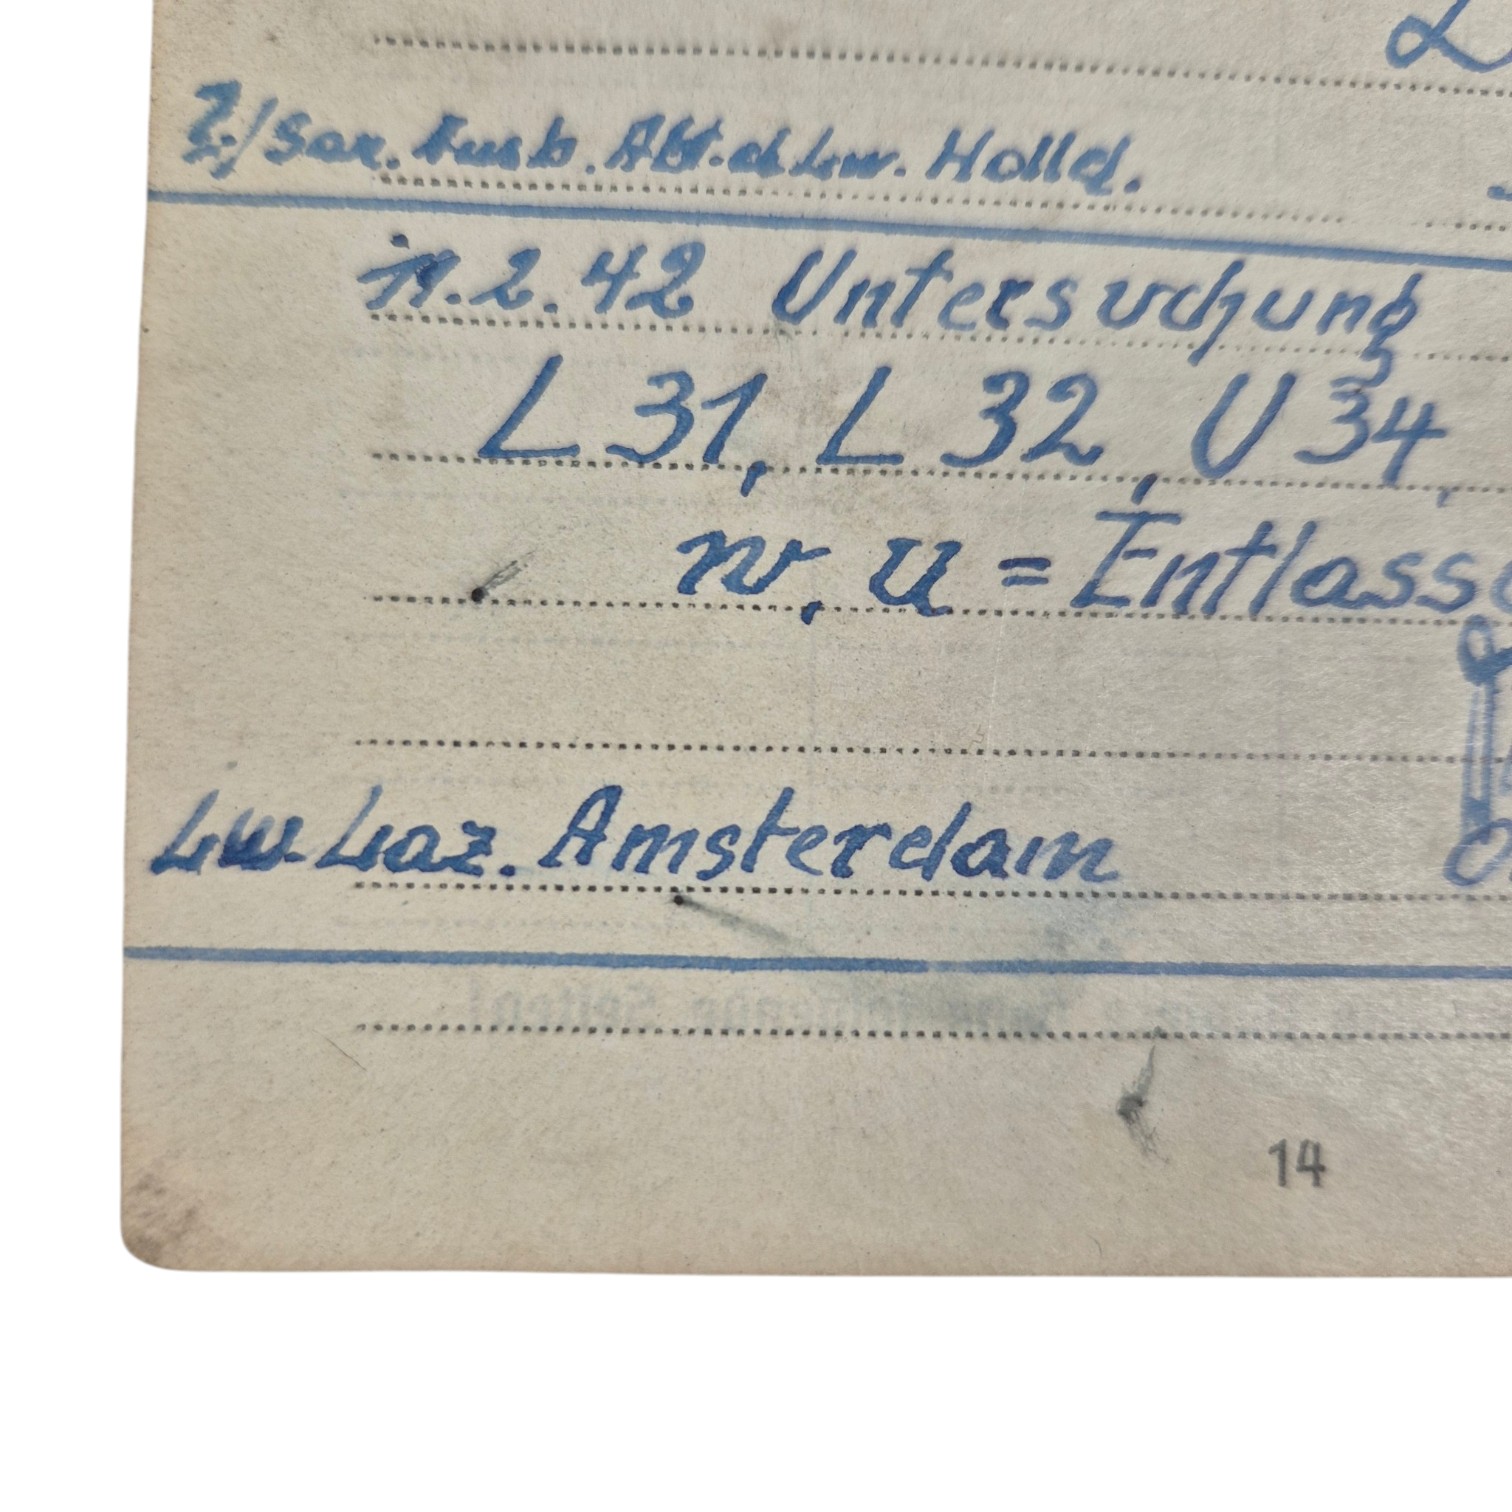 2./San. Ausb. Abt. d Lw. Holld.
11.2.42 Untersuchung
L 31, L 32, U 34,
w, u = Entlass
Lw. Laz. Amsterdam
14